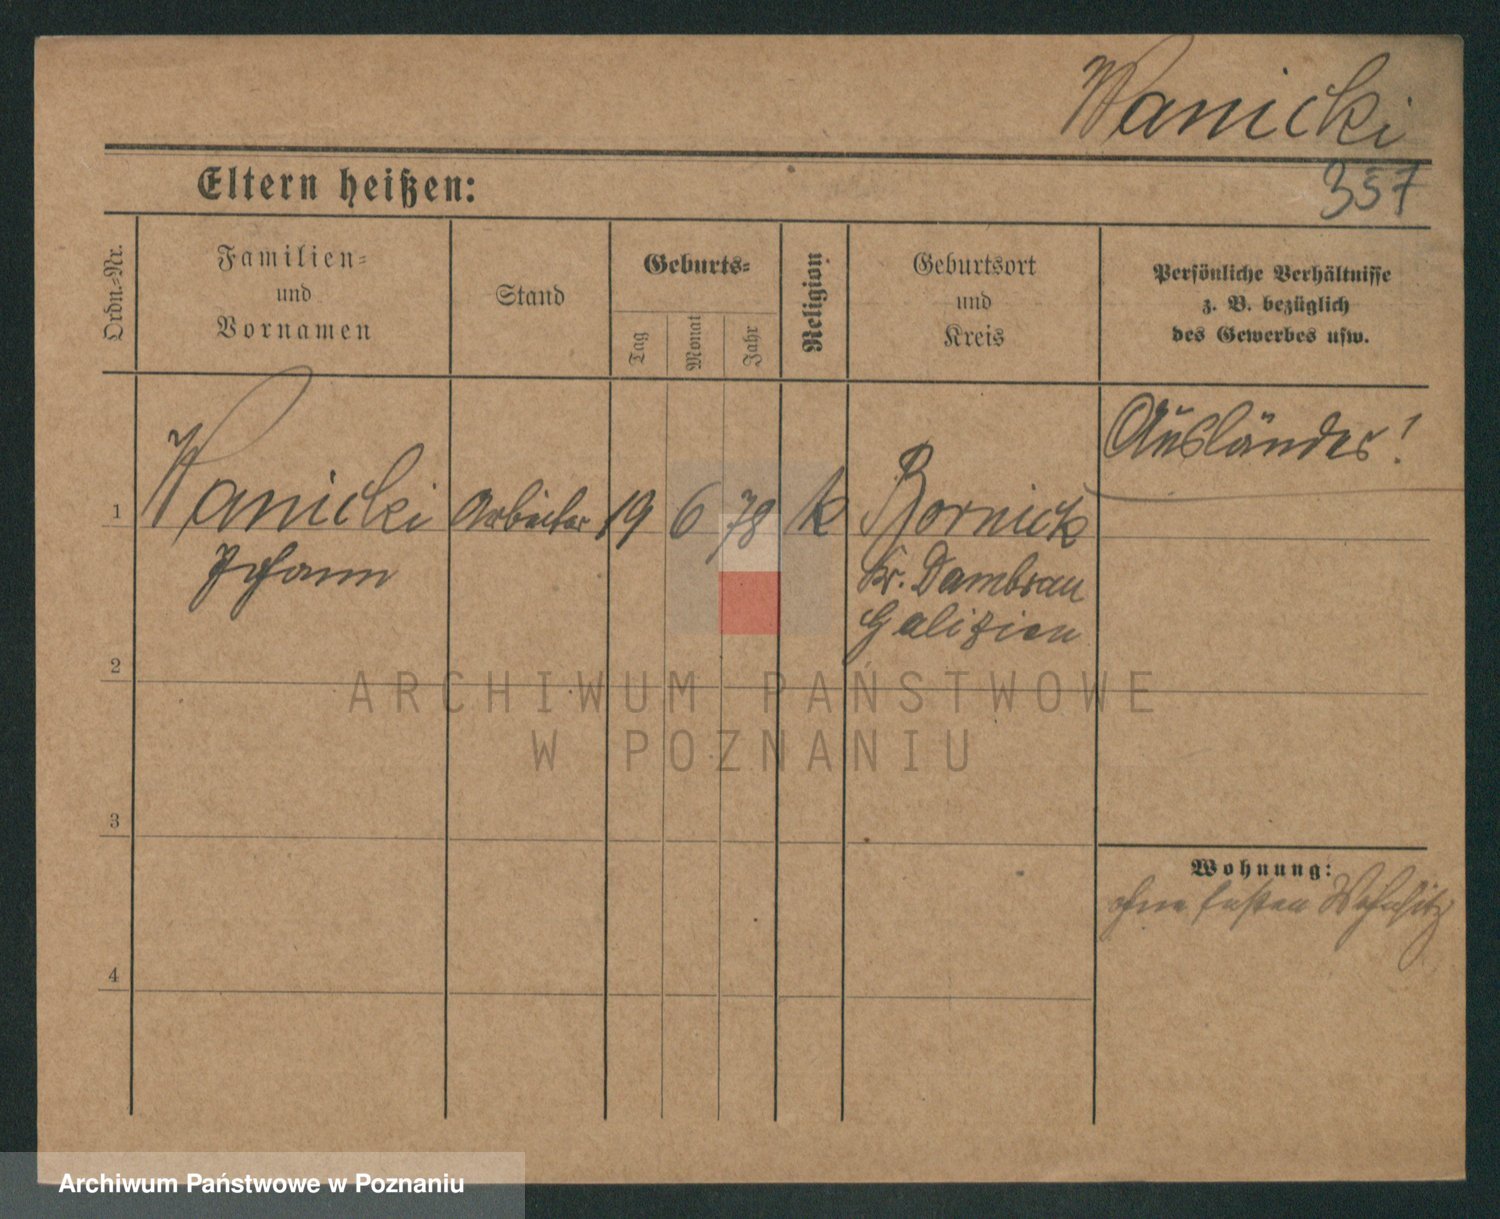 Wanicki
357
Eltern heißen:
Ordn.-Nr.
Familien-
und
Vornamen
Stand
Geburts-
Tag
Monat
Jahr
Religion
Geburtsort
und
Kreis
Persönliche Verhältnisse
z. B. bezüglich
des Gewerbes usw.
Ausländer!
1 Wanicki Arbeiter 19 6 78 k Bornick
Johann Kr. Dambrau
Galizien
2
ARCHIWUM PAŃSTWOWE
W POZNANIU
3
Wohnung:
ohne festen Wohnsitz
4
Archiwum Państwowe w Poznaniu